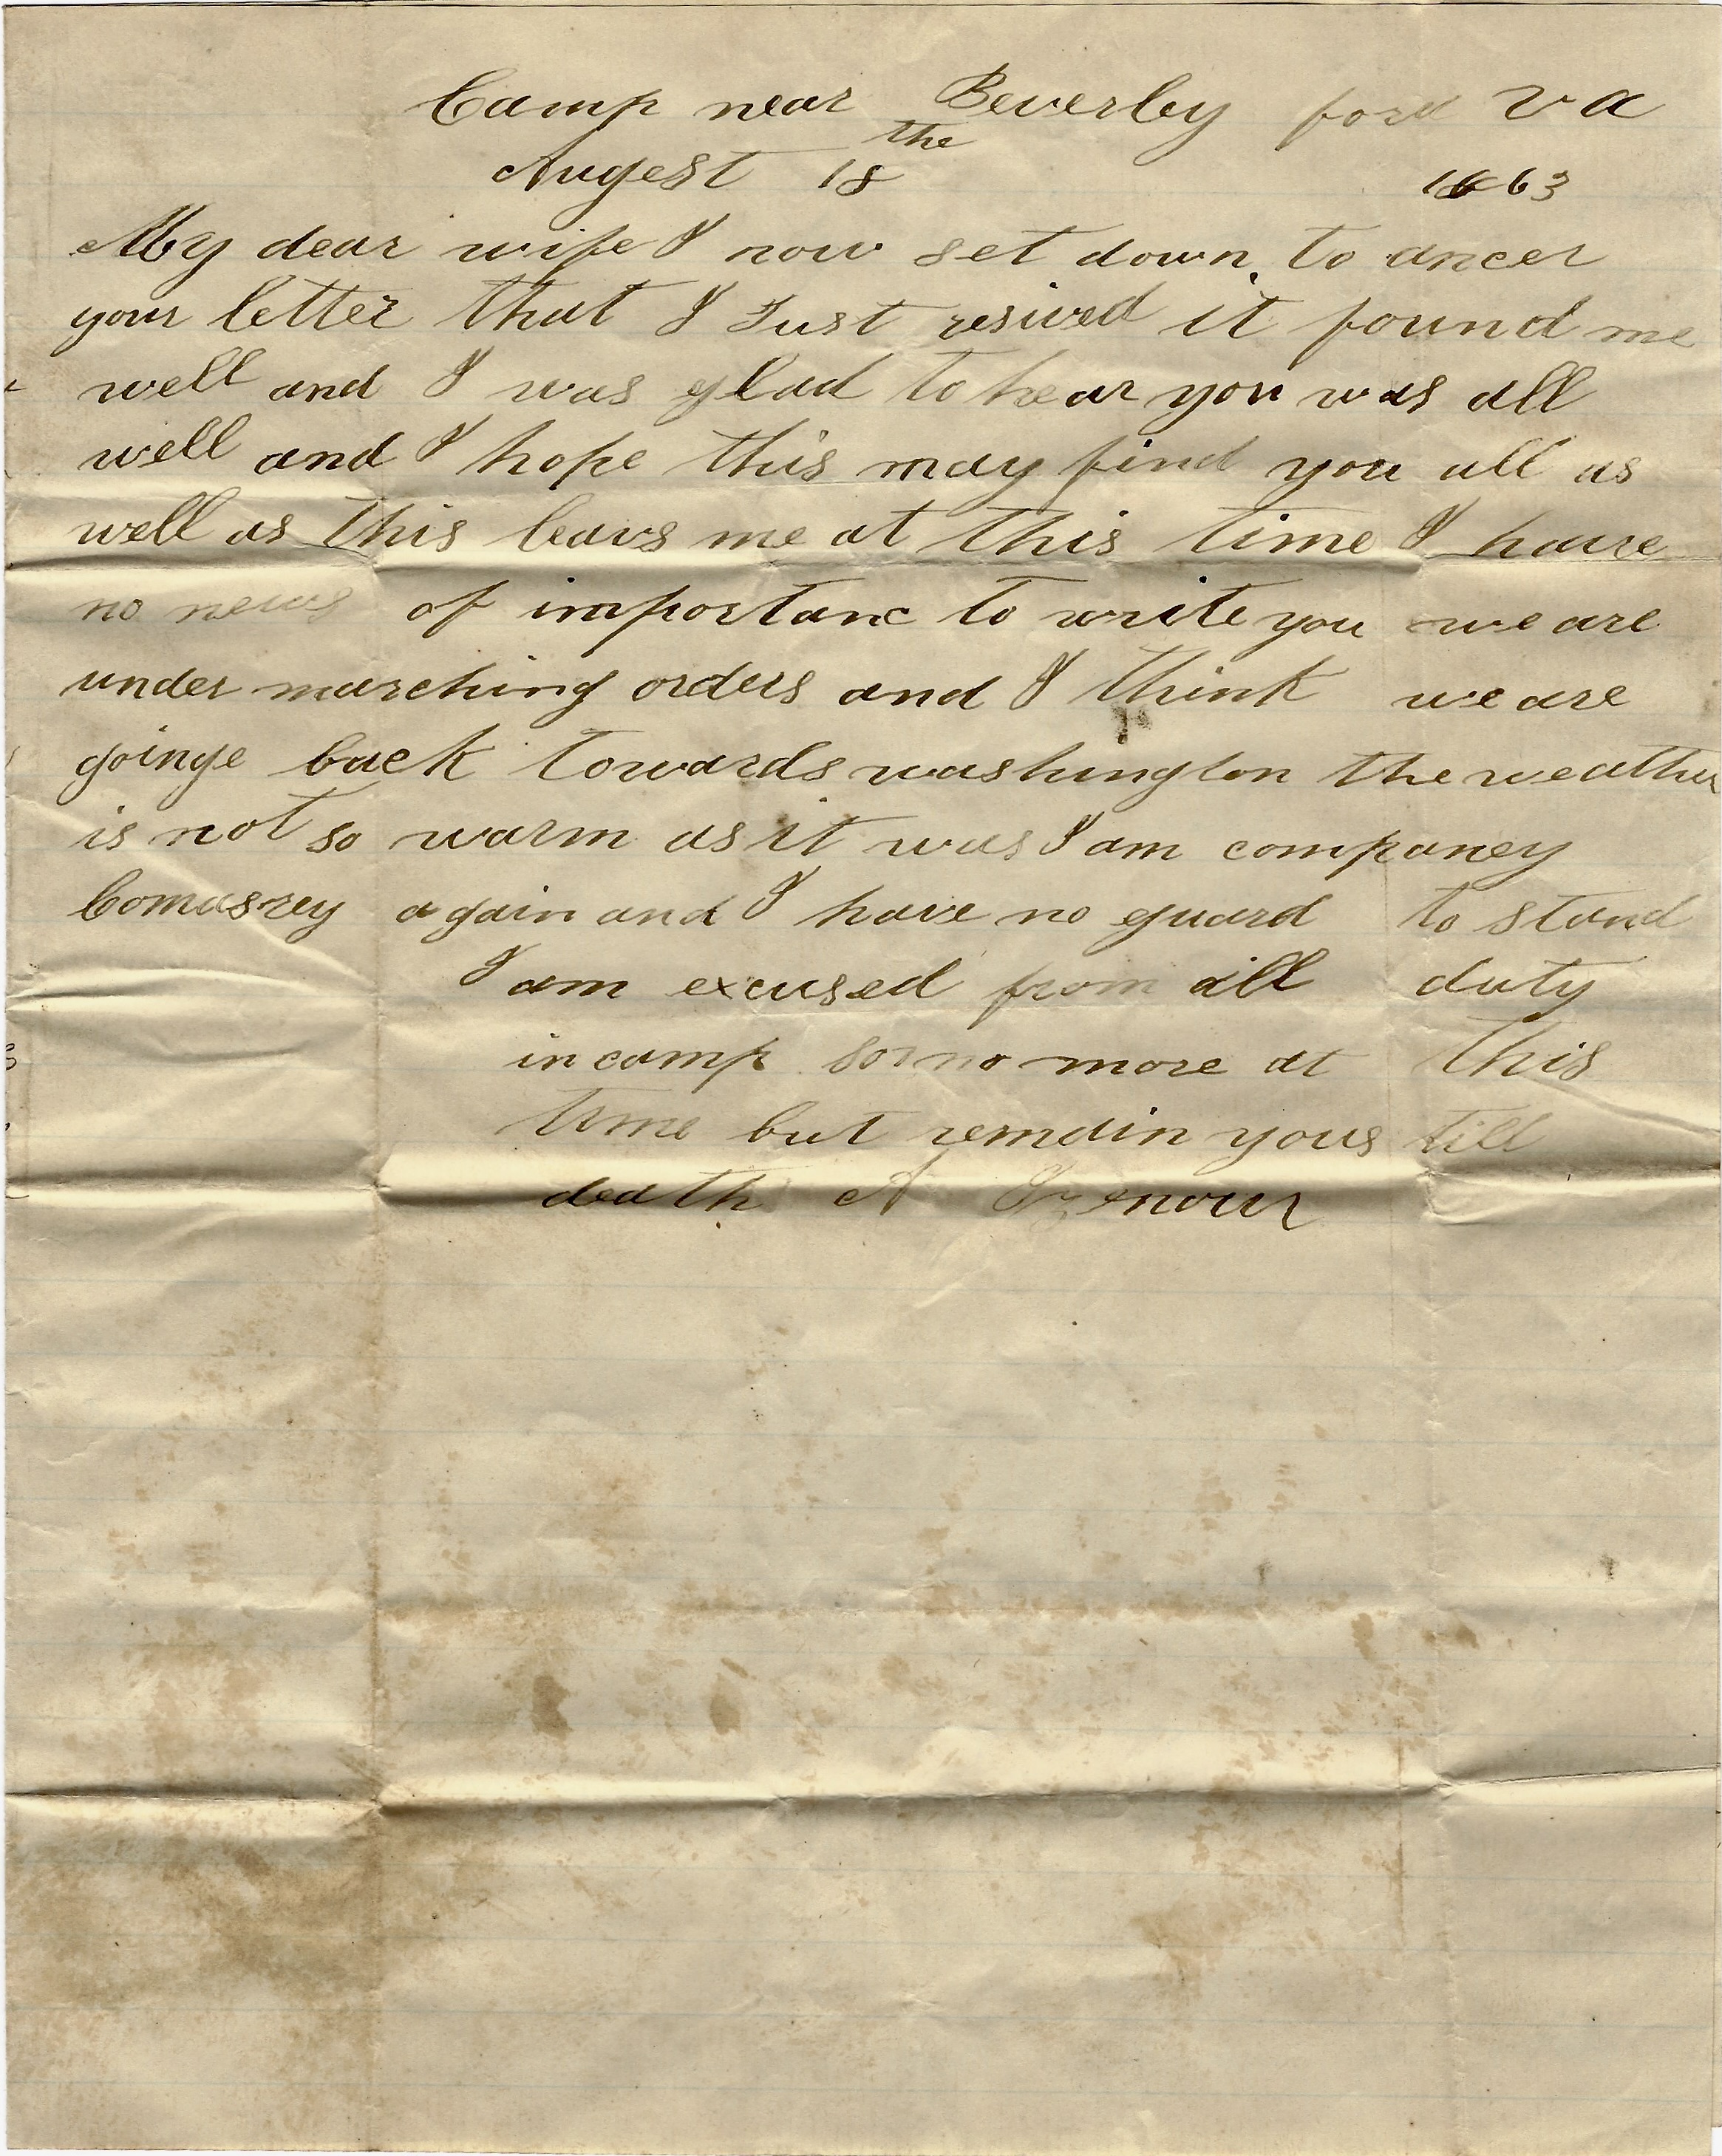 Camp near Beverley ford va
Augest 18 the 1863
My dear wife I now set down to ancer
your letter that I Just resived it found me
well and I was glad to hear you was all
well and I hope this may find you all as
well as this leavs me at this time I have
no news of importanc to write you we are
under marching orders and I think we are
goinge back towards washington the weather
is not so warm as it was I am companey
Comasrey again and I have no guard to stand
I am excused from all duty
in camp so no more at this
time but remain yous till
death A Izenour